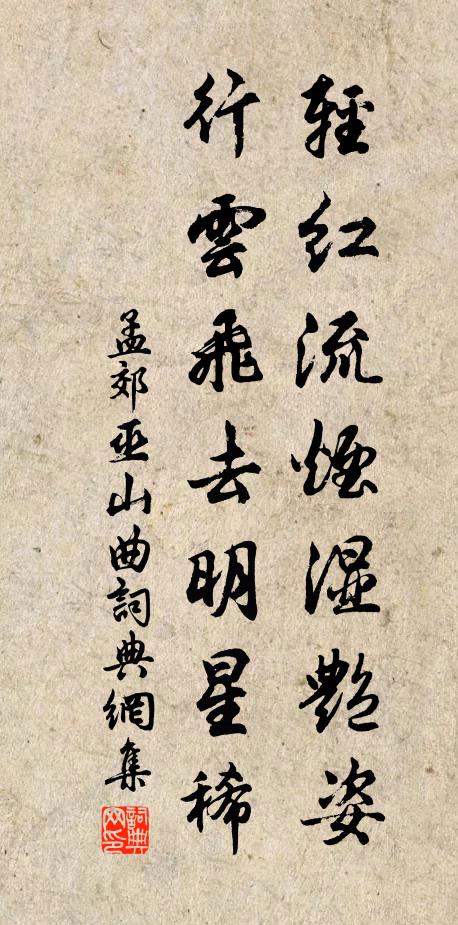 輕紅流煙濕艷姿
行雲飛去明星稀
孟郊巫山曲詞典網集
詞典网印